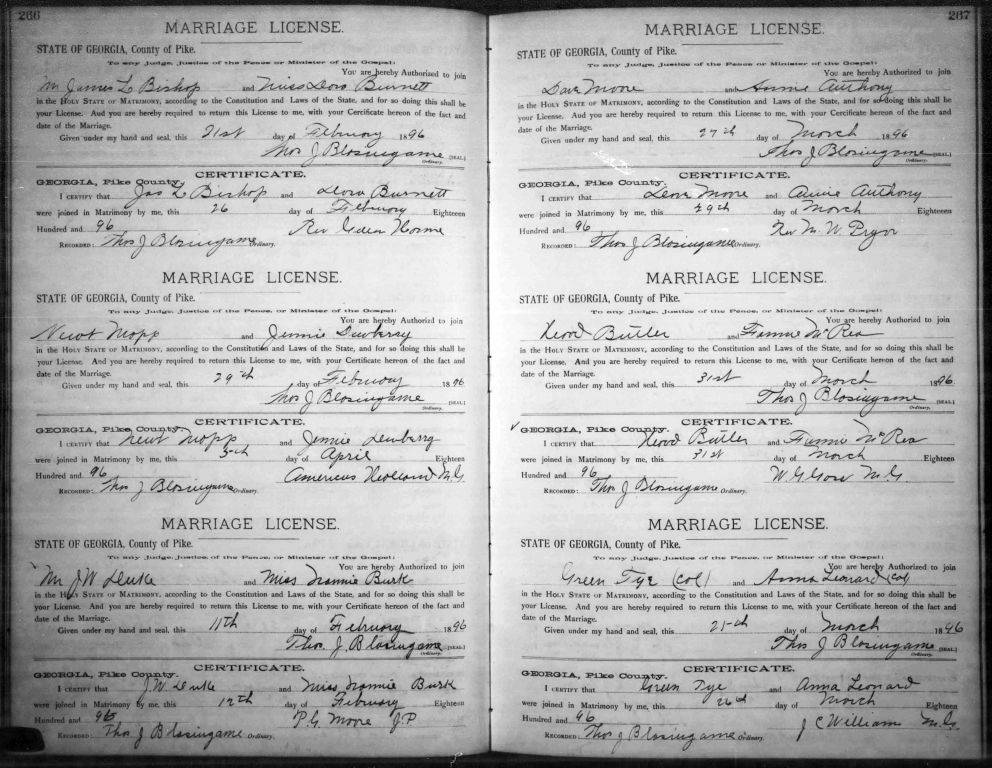 266
MARRIAGE LICENSE.
STATE OF GEORGIA, County of Pike.
To any Judge, Justice of the Peace or Minister of the Gospel:
You are hereby Authorized to join
Mr James L Bishop and Miss Dora Burnett
in the HOLY STATE OF MATRIMONY, according to the Constitution and Laws of the State, and for so doing this shall be
your License. And you are hereby required to return this License to me, with your Certificate hereon of the fact and
date of the Marriage.
Given under my hand and seal, this 21st day of February 1896
Thos J Blasingame (SEAL)
Ordinary.
CERTIFICATE.
GEORGIA, Pike County.
I CERTIFY that Jas L Bishop and Dora Burnett
were joined in Matrimony by me, this 26 day of February Eighteen
Hundred and 96 Rev
RECORDED: Thos J Blasingame Ordinary.
MARRIAGE LICENSE.
STATE OF GEORGIA, County of Pike.
To any Judge, Justice of the Peace, or Minister of the Gospel:
You are hereby Authorized to join
Newt Mapp and Jennie
in the HOLY STATE OF MATRIMONY, according to the Constitution and Laws of the State, and for so doing this shall be
your License. And you are hereby required to return this License to me, with your Certificate hereon of the fact and
date of the Marriage.
Given under my hand and seal, this 29th day of February 1896
Thos J Blasingame (SEAL)
Ordinary.
CERTIFICATE.
GEORGIA, Pike County.
I CERTIFY that Newt Mapp and Jennie
were joined in Matrimony by me, this 5th day of April Eighteen
Hundred and 96 Americus M.G.
RECORDED: Thos J Blasingame Ordinary.
MARRIAGE LICENSE.
STATE OF GEORGIA, County of Pike.
To any Judge, Justice of the Peace, or Minister of the Gospel:
You are hereby Authorized to join
Mr J W Duke and Miss Nannie Burk
in the HOLY STATE OF MATRIMONY, according to the Constitution and Laws of the State, and for so doing this shall be
your License. And you are hereby required to return this License to me, with your Certificate hereon of the fact and
date of the Marriage.
Given under my hand and seal, this 11th day of February 1896
Thos. J Blasingame (SEAL)
Ordinary.
CERTIFICATE.
GEORGIA, Pike County.
I CERTIFY that J.W Duke and Miss Nannie Burk
were joined in Matrimony by me, this 12th day of February Eighteen
Hundred and 96 P.G. Moore J.P
RECORDED: Thos J Blasingame Ordinary.
267
MARRIAGE LICENSE.
STATE OF GEORGIA, County of Pike.
To any Judge, Justice of the Peace or Minister of the Gospel:
You are hereby Authorized to join
Dave Moore and Annie Anthony
in the HOLY STATE OF MATRIMONY, according to the Constitution and Laws of the State, and for so doing this shall be
your License. And you are hereby required to return this License to me, with your Certificate hereon of the fact and
date of the Marriage.
Given under my hand and seal, this 27th day of March 1896
Thos J Blasingame (SEAL)
Ordinary.
CERTIFICATE.
GEORGIA, Pike County.
I CERTIFY that Moore and Annie Anthony
were joined in Matrimony by me, this 29th day of March Eighteen
Hundred and 96 Rev M. W. Pryor
RECORDED: Thos J Blasingame Ordinary.
MARRIAGE LICENSE.
STATE OF GEORGIA, County of Pike.
To any Judge, Justice of the Peace, or Minister of the Gospel:
You are hereby Authorized to join
Butler and Fannie McRea
in the HOLY STATE OF MATRIMONY, according to the Constitution and Laws of the State, and for so doing this shall be
your License. And you are hereby required to return this License to me, with your Certificate hereon of the fact and
date of the Marriage.
Given under my hand and seal, this 31st day of March 1896
Thos J Blasingame (SEAL)
Ordinary.
CERTIFICATE.
GEORGIA, Pike County.
I CERTIFY that Butler and Fannie McRea
were joined in Matrimony by me, this 31st day of March Eighteen
Hundred and 96 W.G. M.G.
RECORDED: Thos J Blasingame Ordinary.
MARRIAGE LICENSE.
STATE OF GEORGIA, County of Pike.
To any Judge, Justice of the Peace, or Minister of the Gospel:
You are hereby Authorized to join
Green Tye (Col) and Anna Leonard (Col)
in the HOLY STATE OF MATRIMONY, according to the Constitution and Laws of the State, and for so doing this shall be
your License. And you are hereby required to return this License to me, with your Certificate hereon of the fact and
date of the Marriage.
Given under my hand and seal, this 25th day of March 1896
Thos J Blasingame (SEAL)
Ordinary.
CERTIFICATE.
GEORGIA, Pike County.
I CERTIFY that Green Tye and Anna Leonard
were joined in Matrimony by me, this 26th day of March Eighteen
Hundred and 96 J C William M.G.
RECORDED: Thos J Blasingame Ordinary.